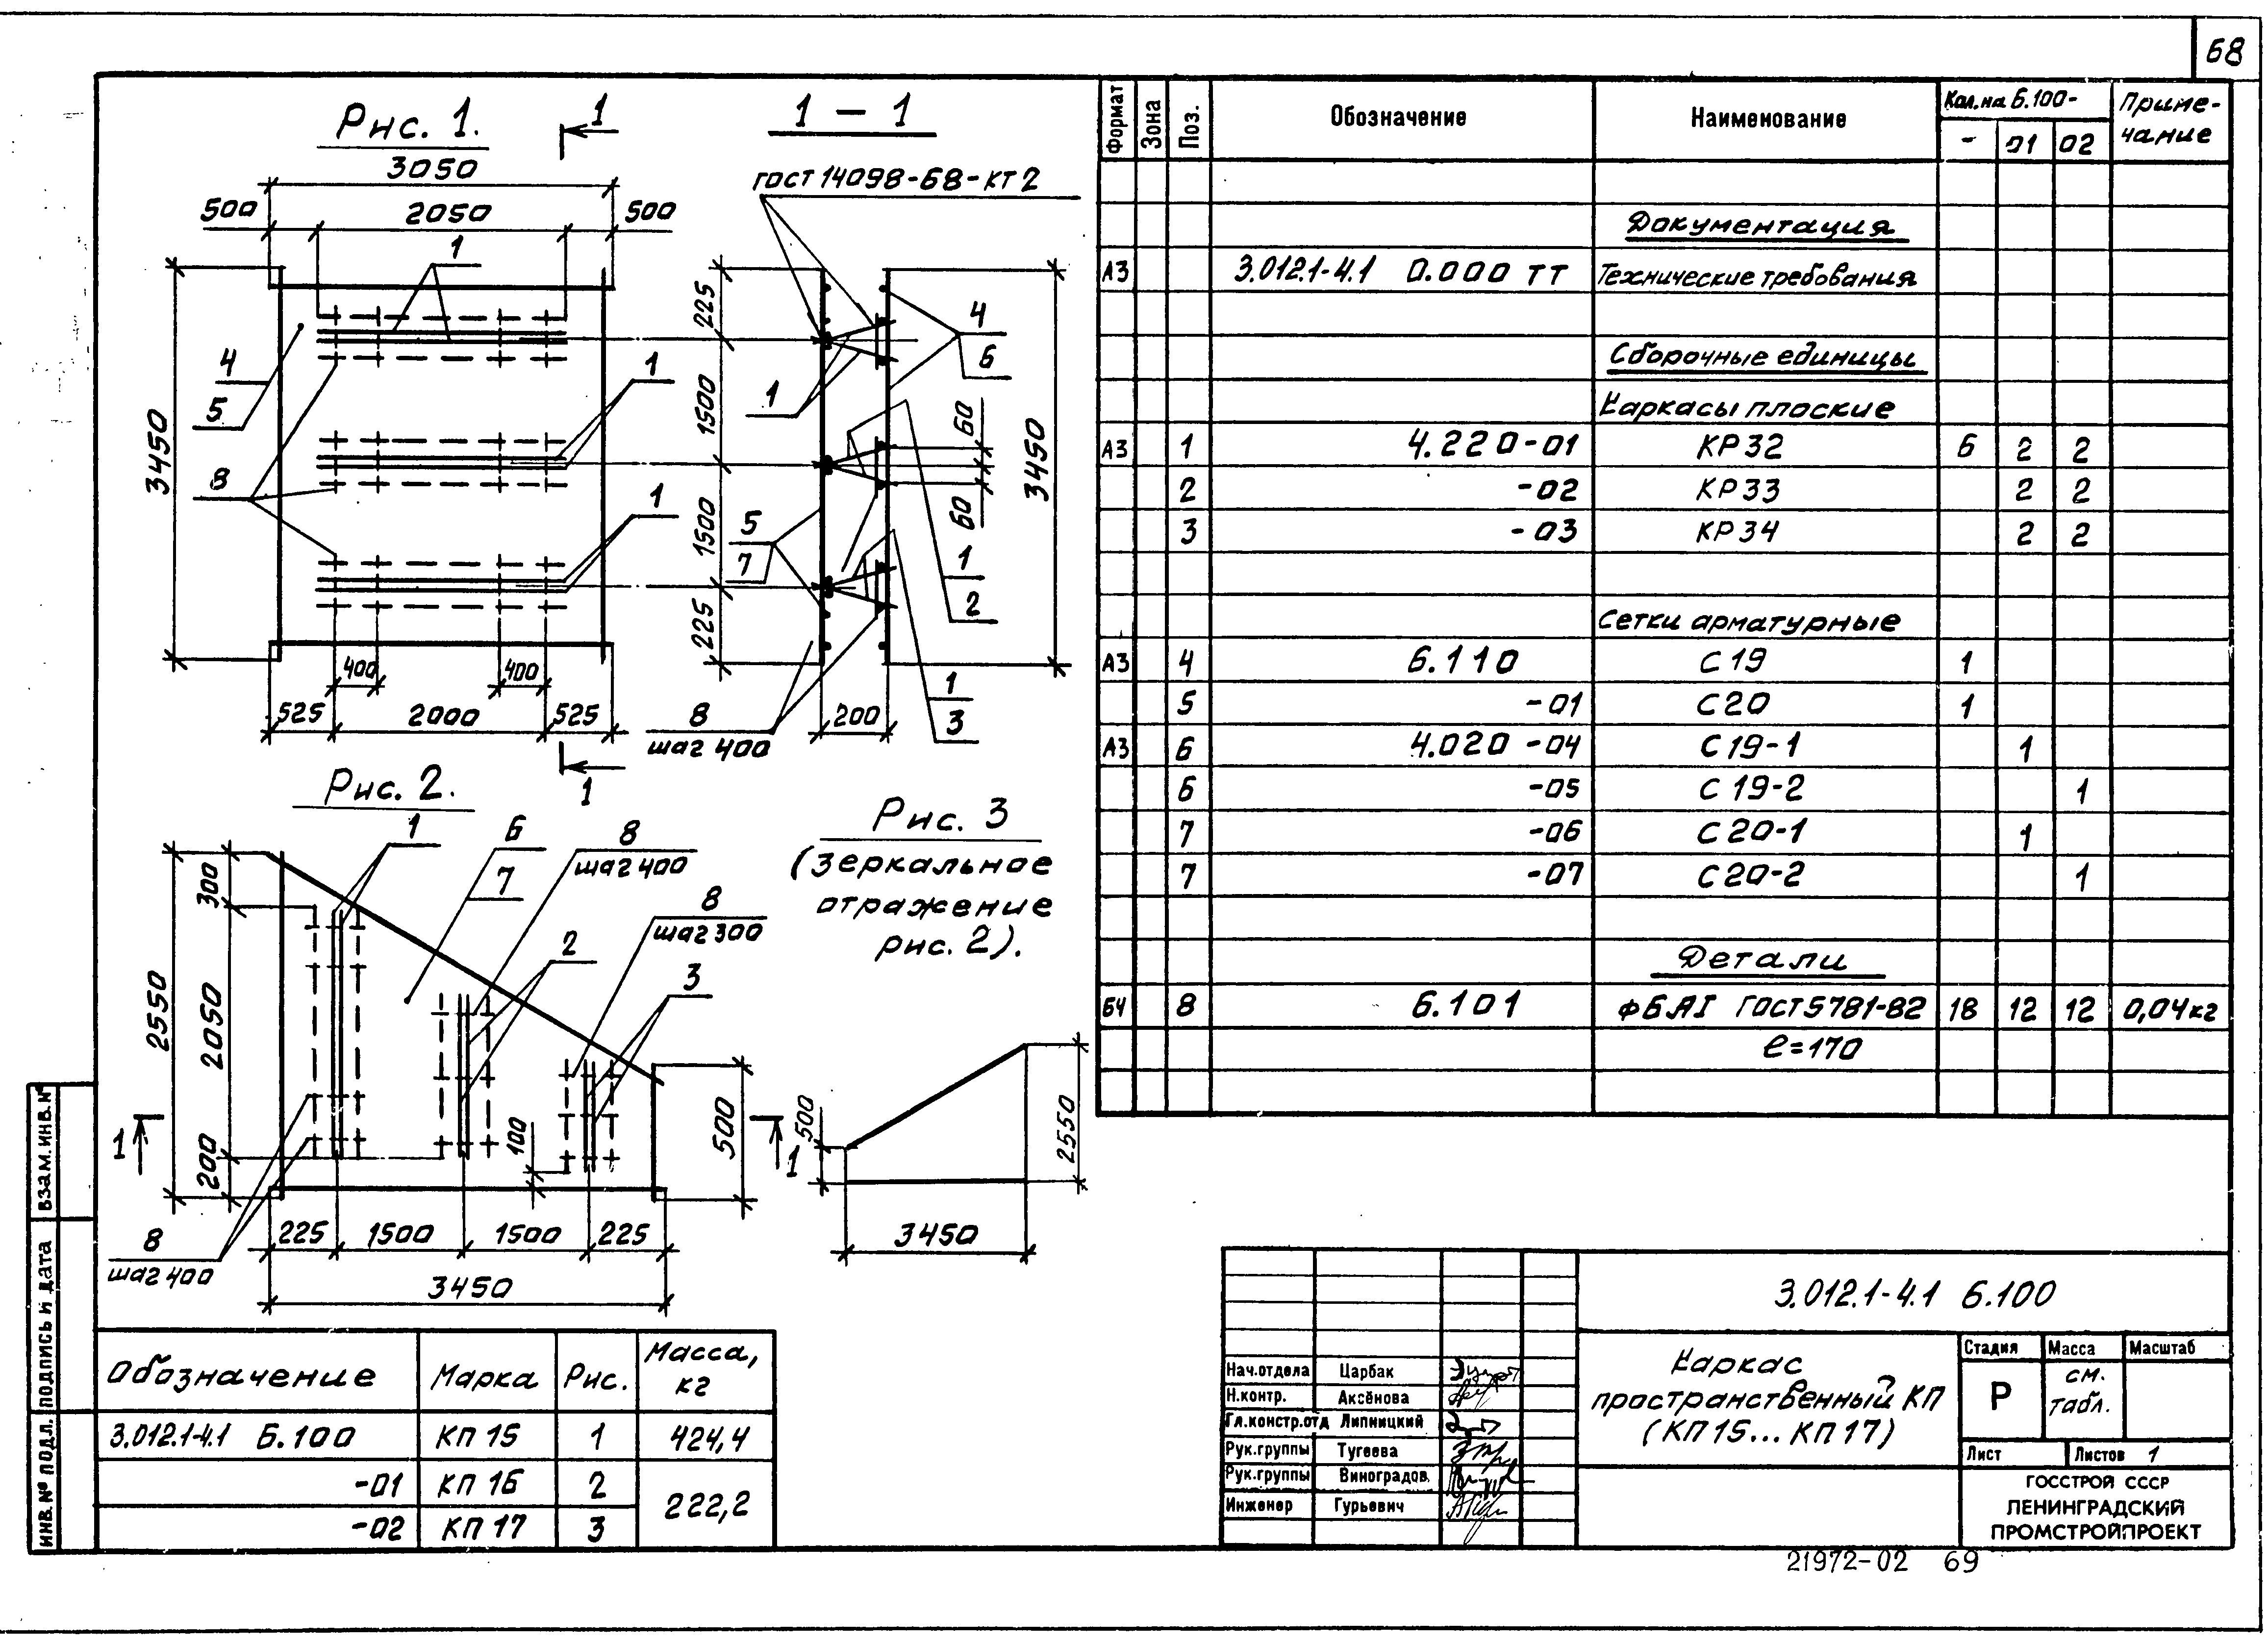 68
Рис. 1.
1
1 – 1
3050
500
2050
500
1
ГОСТ 14098-68-КТ2
3450
4
5
8
1
1
400
400
525
2000
525
1
225
1500
1500
225
4
6
1
60
60
3450
5
7
1
2
1
3
8
шаг 400
200
Рис. 2.
1
6
7
8
шаг 400
8
шаг 300
2
3
2550
300
2050
200
100
500
1
1
8
шаг 400
225
1500
1500
225
3450
Рис. 3
(зеркальное
отражение
рис. 2).
500
2550
3450
Формат Зона Поз. Обозначение Наименование Кол. на 6.100- Приме-
чание
- 01 02
Документация
А3 3.012.1-4.1 0.000 ТТ Технические требования
Сборочные единицы
Каркасы плоские
А3 1 4.220-01 КР32 6 2 2
2 -02 КР33 2 2
3 -03 КР34 2 2
Сетки арматурные
А3 4 6.110 С19 1
5 -01 С20 1
А3 6 4.020-04 С19-1 1
6 -05 С19-2 1
7 -06 С20-1 1
7 -07 С20-2 1
Детали
БЧ 8 6.101 ф6АI ГОСТ5781-82 18 12 12 0,04кг
ℓ=170
Обозначение Марка Рис. Масса,
кг
3.012.1-4.1 6.100 КП 15 1 424,4
-01 КП 16 2 222,2
-02 КП 17 3
3.012.1-4.1 6.100
Каркас
пространственный КП
(КП15... КП17)
Стадия Масса Масштаб
Р см.
табл.
Лист Листов 1
ГОССТРОЙ СССР
ЛЕНИНГРАДСКИЙ
ПРОМСТРОЙПРОЕКТ
Нач.отдела Царбак
Н.контр. Аксёнова
Гл.констр.отд Липницкий
Рук.группы Тугеева
Рук.группы Виноградов
Инженер Гурьевич
ИНВ.№ ПОДЛ. ПОДПИСЬ И ДАТА ВЗАМ.ИНВ.№
21972-02 69